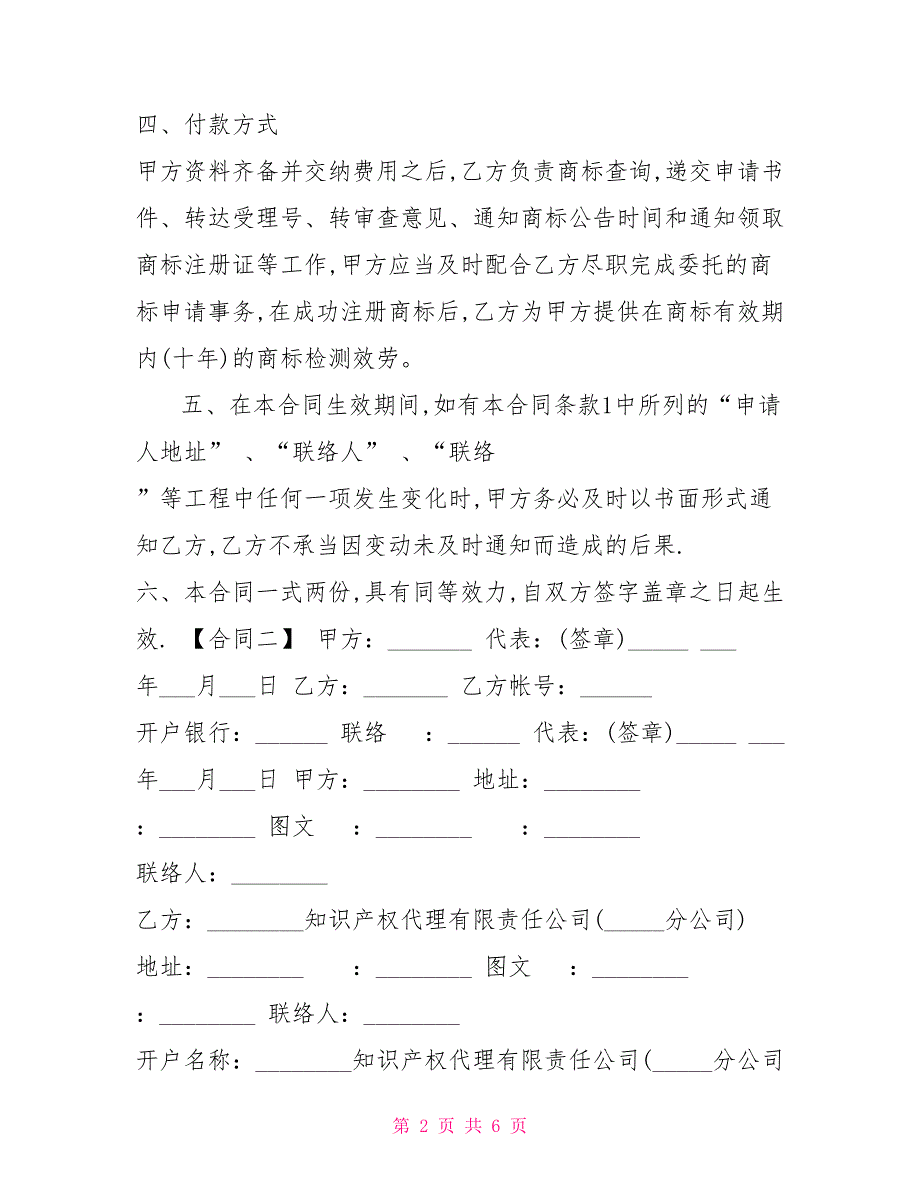 四、付款方式
甲方资料齐备并交纳费用之后,乙方负责商标查询,递交申请书
件、转达受理号、转审查意见、通知商标公告时间和通知领取
商标注册证等工作,甲方应当及时配合乙方尽职完成委托的商
标申请事务,在成功注册商标后,乙方为甲方提供在商标有效期
内(十年)的商标检测效劳。
五、在本合同生效期间,如有本合同条款1中所列的“申请
人地址” 、“联络人” 、“联络
”等工程中任何一项发生变化时,甲方务必及时以书面形式通
知乙方,乙方不承当因变动未及时通知而造成的后果.
六、本合同一式两份,具有同等效力,自双方签字盖章之日起生
效. 【合同二】 甲方：_______ 代表：(签章)_____ ___
年___月___日 乙方：_______ 乙方帐号：______
开户银行：______ 联络 ：______ 代表：(签章)_____ ___
年___月___日 甲方：________ 地址：________
：________ 图文 ：________ ：________
联络人：________
乙方：________知识产权代理有限责任公司(_____分公司)
地址：________ ：________ 图文 ：________
：________ 联络人：________
开户名称：________知识产权代理有限责任公司(_____分公司
第 2 页 共 6 页